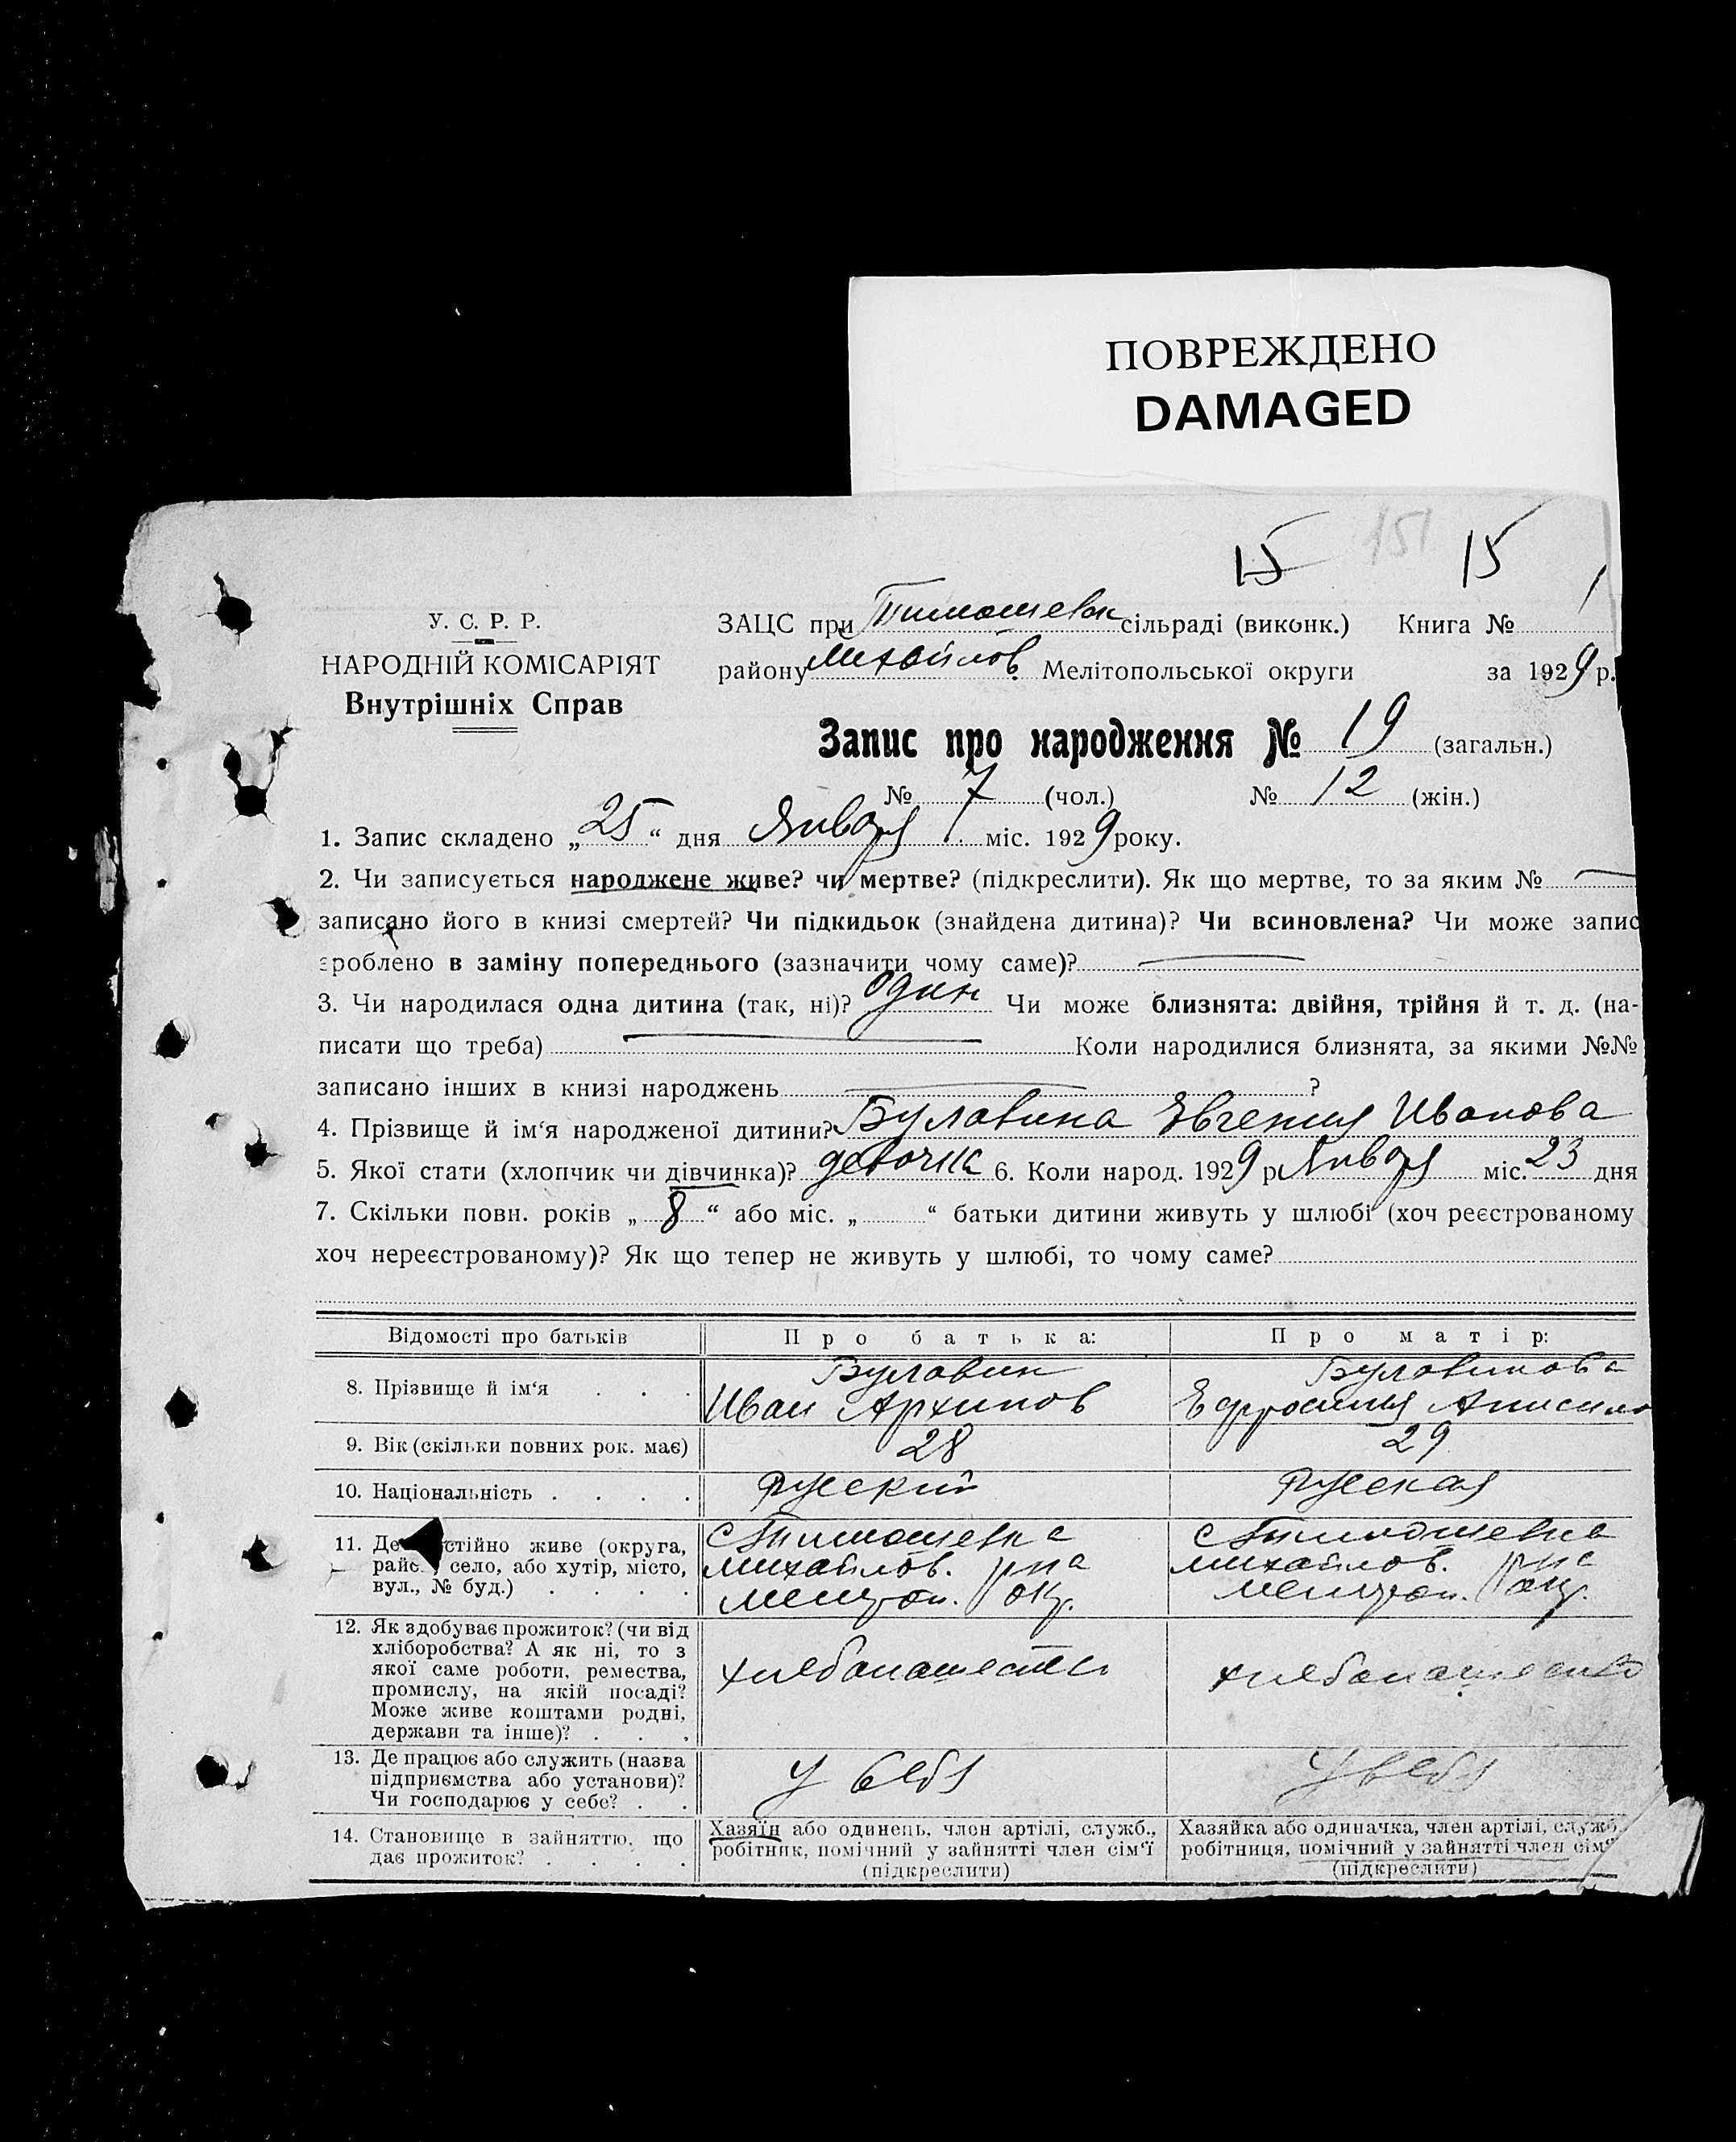 ПОВРЕЖДЕНО
DAMAGED
15 151 15
У. С. Р. Р.
НАРОДНІЙ КОМІСАРІЯТ
Внутрішніх Справ
ЗАЦС при Тимошевск сільраді (виконк.) Книга № 1
району Михайлов. Мелітопольської округи за 1929 р.
Запис про народження № 19 (загальн.)
№ 7 (чол.) № 12 (жін.)
1. Запис складено „25“ дня Января міс. 1929 року.
2. Чи записується народжене живе? чи мертве? (підкреслити). Як що мертве, то за яким № —
записано його в книзі смертей? Чи підкидьок (знайдена дитина)? Чи всиновлена? Чи може запис
зроблено в заміну попереднього (зазначити чому саме)? —
3. Чи народилася одна дитина (так, ні)? один Чи може близнята: двійня, трійня й т. д. (на-
писати що треба) — Коли народилися близнята, за якими №№
записано інших в книзі народжень — ?
4. Прізвище й ім‘я народженої дитини? Булавина Евгения Иванова
5. Якої стати (хлопчик чи дівчинка)? девочка 6. Коли народ. 1929 р Января міс. 23 дня
7. Скільки повн. років „8“ або міс. „ “ батьки дитини живуть у шлюбі (хоч реєстрованому
хоч нереєстрованому)? Як що тепер не живуть у шлюбі, то чому саме?
Відомості про батьків Про батька: Про матір:
8. Прізвище й ім‘я . . . Булавин Иван Архипов Булавинова Ефросиния
9. Вік (скільки повних рок. має) 28 29
10. Національність . . . . Русский Русская
11. Де стійно живе (округа, с Тимошевка с Тимошевка
райо , село, або хутір, місто, михайлов. рна михайлов. рна
вул., № буд.) . . . . мелитоп. окр. мелитоп. окр.
12. Як здобуває прожиток? (чи від
хліборобства? А як ні, то з
якої саме роботи, ремества, хлебопашество хлебопашество
промислу, на якій посаді?
Може живе коштами родні,
держави та інше)? . . .
13. Де працює або служить (назва
підприємства або установи)? У себя У себя
Чи господарює у себе? . .
14. Становище в зайняттю, що Хазяїн або одинець, член артілі, служб., Хазяйка або одиначка, член артілі, служб
дає прожиток? . . . . робітник, помічний у зайнятті член сім‘ї робітниця, помічний у зайнятті член сім‘
(підкреслити) (підкреслити)